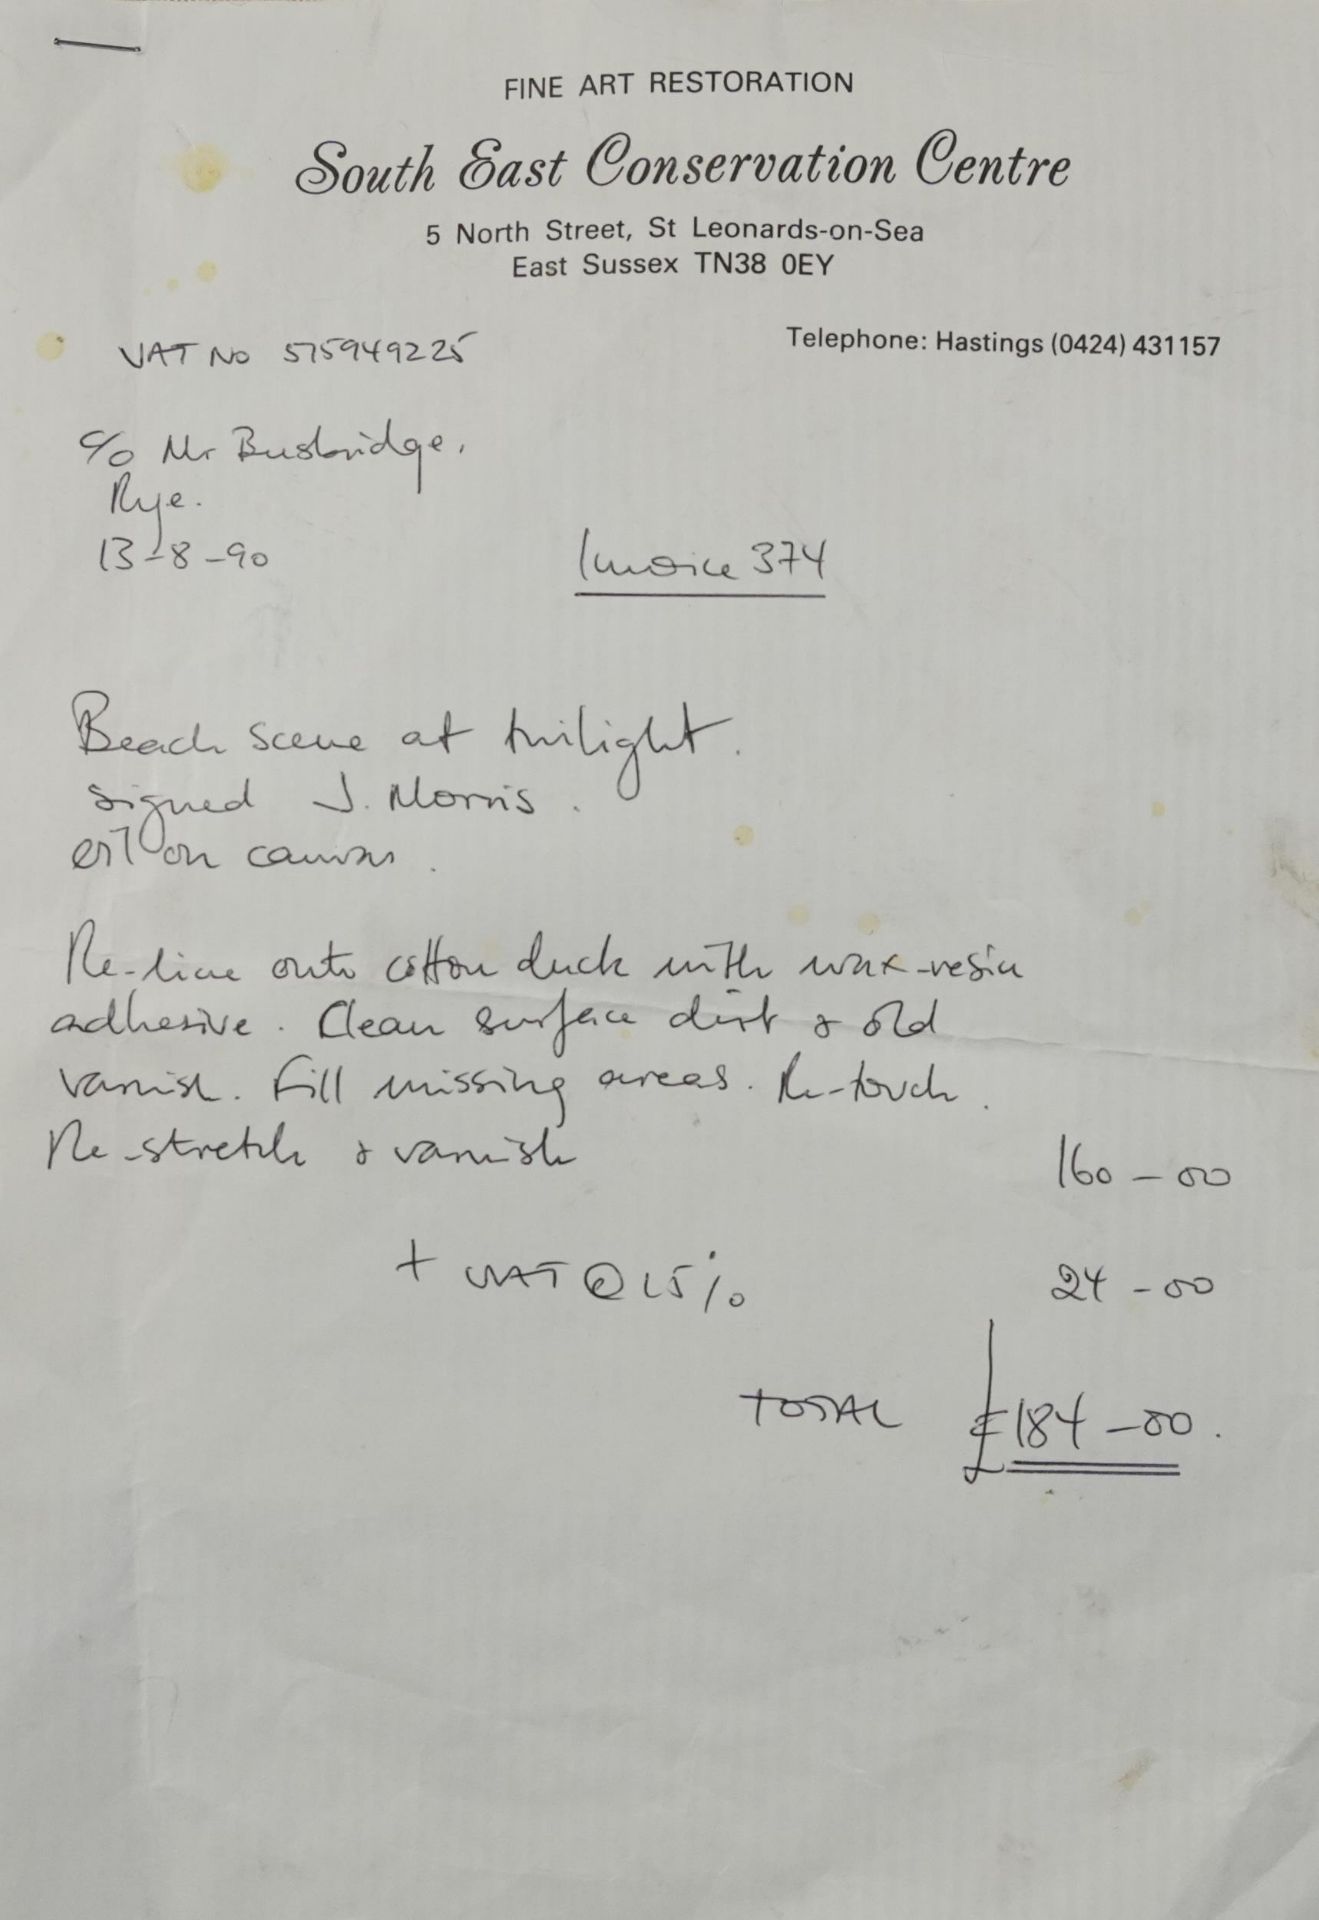 FINE ART RESTORATION
South East Conservation Centre
5 North Street, St Leonards-on-Sea
East Sussex TN38 0EY
Telephone: Hastings (0424) 431157
VAT No 575949225
c/o Mr Busbridge.
Rye.
13-8-90
Invoice 374
Beach scene at twilight.
signed J. Morris.
oil on canvas.
Re-line onto cotton duck with wax-resin
adhesive. Clean surface dirt & old
varnish. Fill missing areas. Re-touch.
Re-stretch & varnish
160-00
+ VAT @ 15%
24-00
TOTAL £184-00.